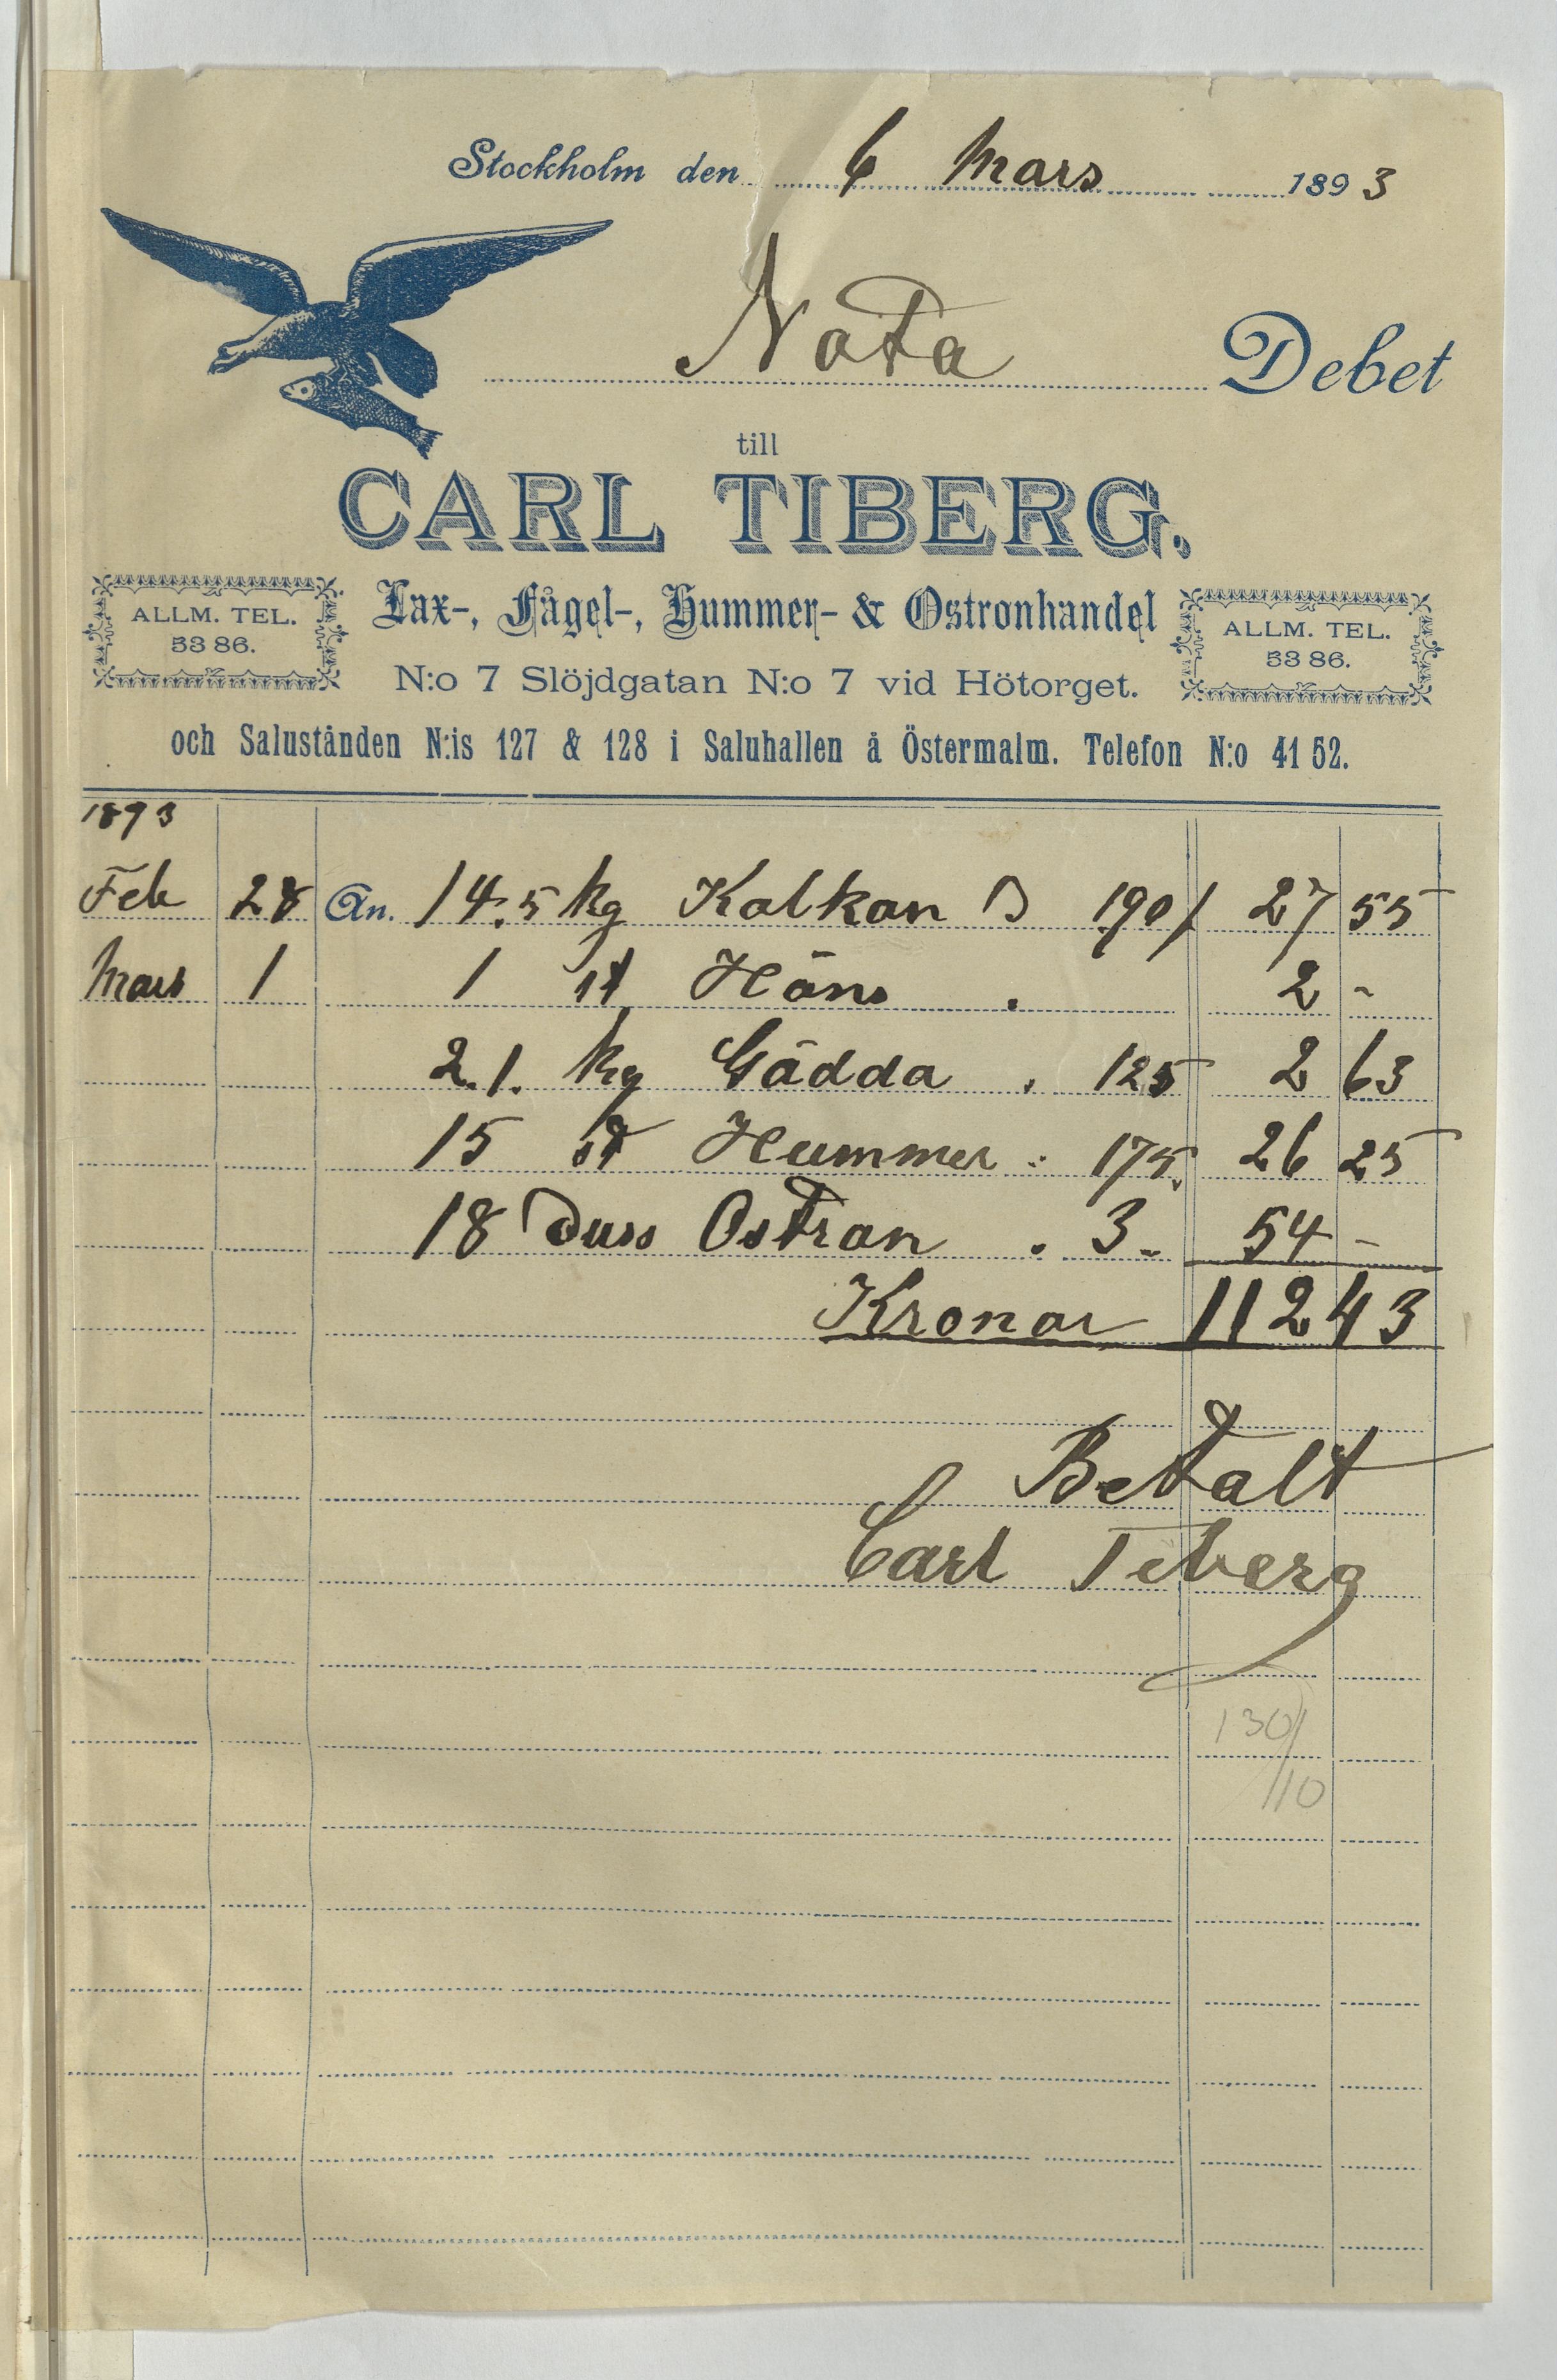 Stockholm den 6 Mars 1893
Nota Debet
till
CARL TIBERG.
ALLM. TEL. 53 86.
Lax-, Fågel-, Hummer- & Ostronhandel
ALLM. TEL. 53 86.
N:o 7 Slöjdgatan N:o 7 vid Hötorget.
och Salustånden N:is 127 & 128 i Saluhallen å Östermalm. Telefon N:o 41 52.
1893
Feb 28 An. 14.5 kg Kalkon 190/ 27 55
Mars 1 1 st Höns . 2 -
2.1. kg Gädda . 125 2 63
15 st Hummer . 175. 26 25
18 Duss Ostron . 3 - 54 -
Kronor 112 43
Betalt
Carl Tiberg
130/
110